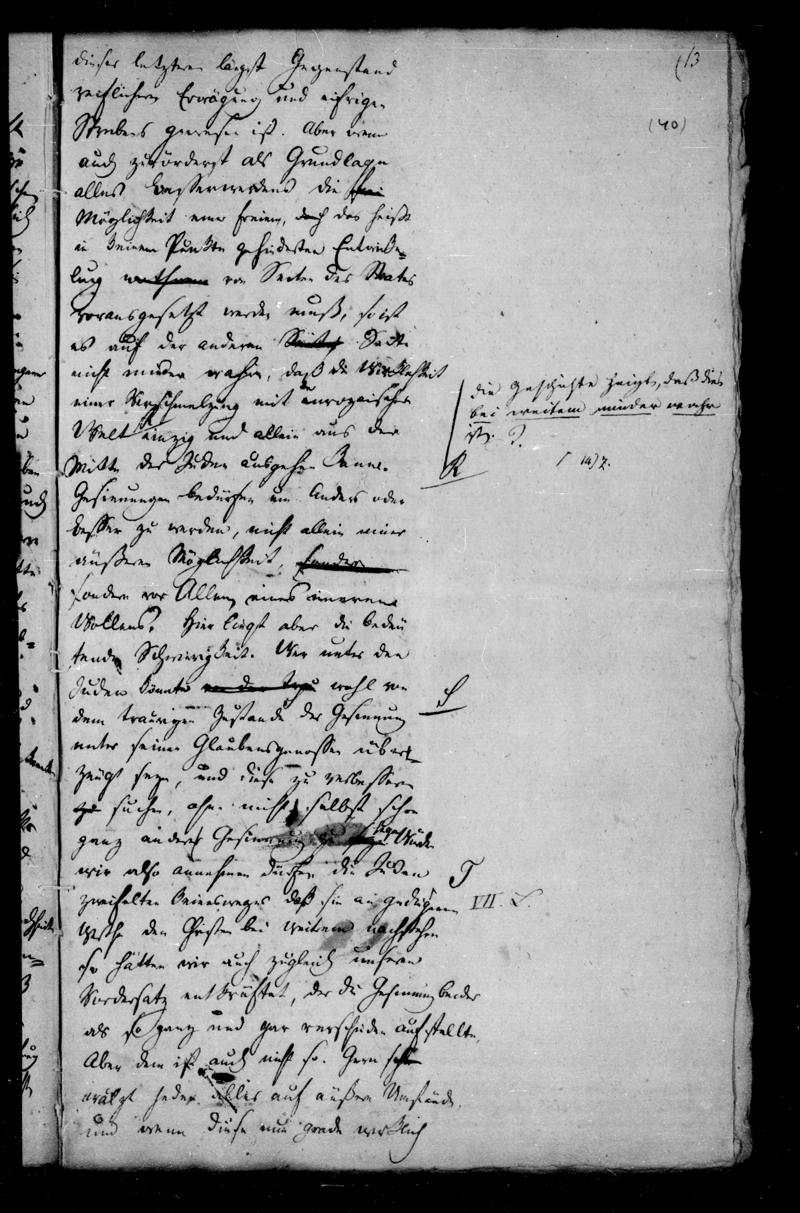 (13
(40)
dieser letzteren längst Gegenstand
reiflicher Erwägung und eifrigen
Strebens gewesen ist. Aber wenn
auch zuvörderst als Grundlage
alles Besserwerdens die
Möglichkeit einer freien, das heißt
in keinem Punkte gehinderten Entwicke-
lung von Seiten des Staates
vorausgesetzt werden muß, so ist
es auf der anderen Seite
nicht minder wahr, daß die Wirklichkeit
einer Verschmelzung mit der europäischen
Welt einzig und allein aus der
Mitte der Juden ausgehen kann.
Gesinnungen bedürfen um anders oder
besser zu werden, nicht allein einer
äußeren Möglichkeit,
sondern vor Allem eines inneren
Wollens. Hier liegt aber die bedeu
tende Schwierigkeit. Wer unter den
Juden könnte wohl von
dem traurigen Zustande der Gesinnung
unter seinen Glaubensgenossen über-
zeugt seyn, und diese zu verbessern
suchen, ohne nicht selbst schon
ganz anderer Gesinnung
wir also annehmen dürfen die Juden
zweifelten keineswegs daß sie an
Werthe den Christen bei weitem nachstehen
so hätten wir auch zugleich unseren
Vordersatz entkräftet, der die Gesinnung beider
als so ganz und gar verschieden aufstellte.
Aber dem ist auch nicht so. Gern
wälzt jeder alles auf äußere Umstände,
und wenn diese nun grade wirklich
die Geschichte zeigt, daß dies
bei weitem minder wahr
ist.
R
S
T
VII.